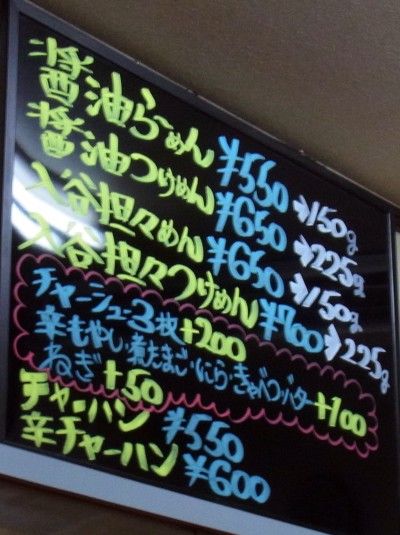 醤油らーめん ¥550→150g
醤油つけめん ¥650→225g
入谷担々めん ¥650→150g
入谷担々つけめん ¥700→225g
チャーシュー3枚+200
辛もやし・煮たまご・にら・きゃべつ・バター+100
ねぎ+50
チャーハン ¥550
辛チャーハン ¥600